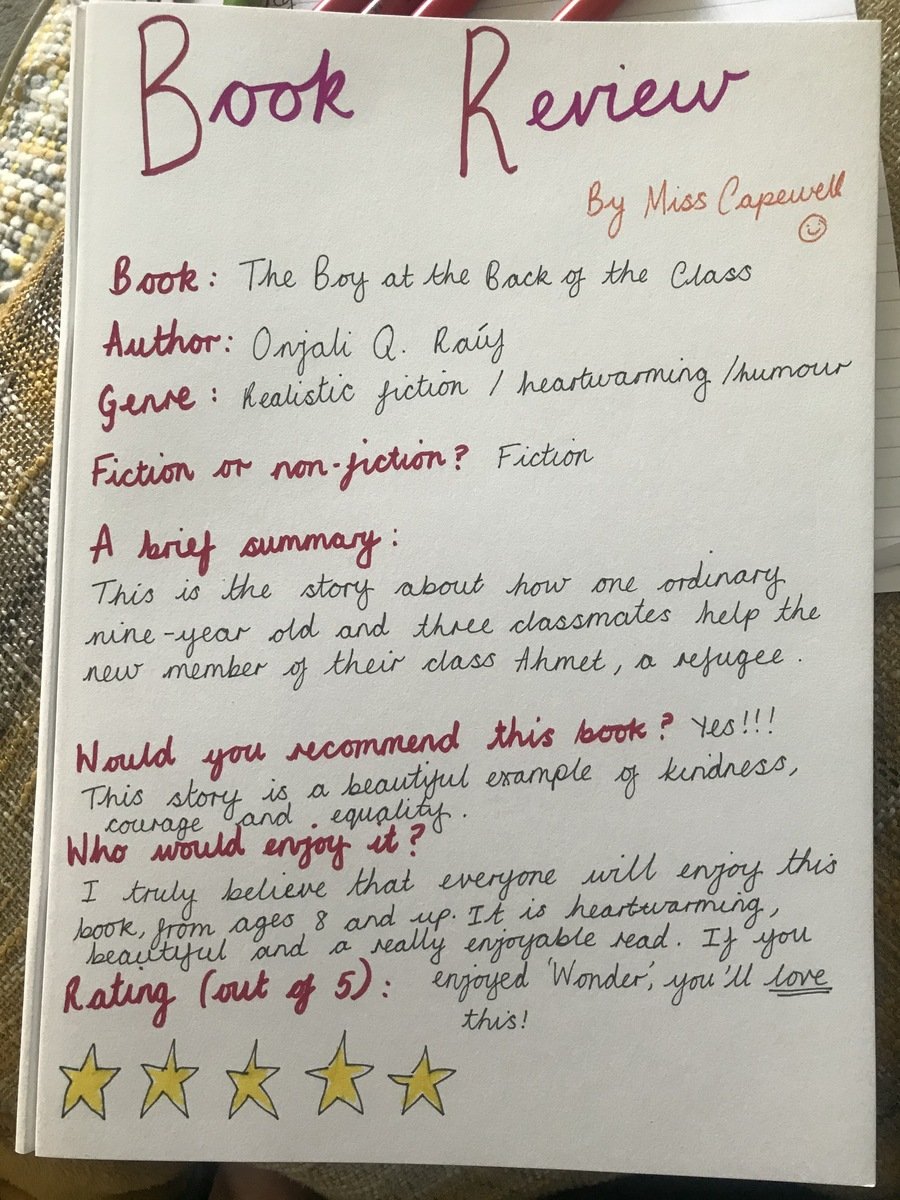 Book Review
By Miss Capewell
Book: The Boy at the Back of the Class
Author: Onjali Q. Raúf
Genre: Realistic fiction / heartwarming / humour
Fiction or non-fiction? Fiction
A brief summary:
This is the story about how one ordinary
nine-year old and three classmates help the
new member of their class Ahmet, a refugee.
Would you recommend this book? Yes!!!
This story is a beautiful example of kindness,
courage and equality.
Who would enjoy it?
I truly believe that everyone will enjoy this
book, from ages 8 and up. It is heartwarming,
beautiful and a really enjoyable read. If you
Rating (out of 5): enjoyed 'Wonder', you'll love
this!